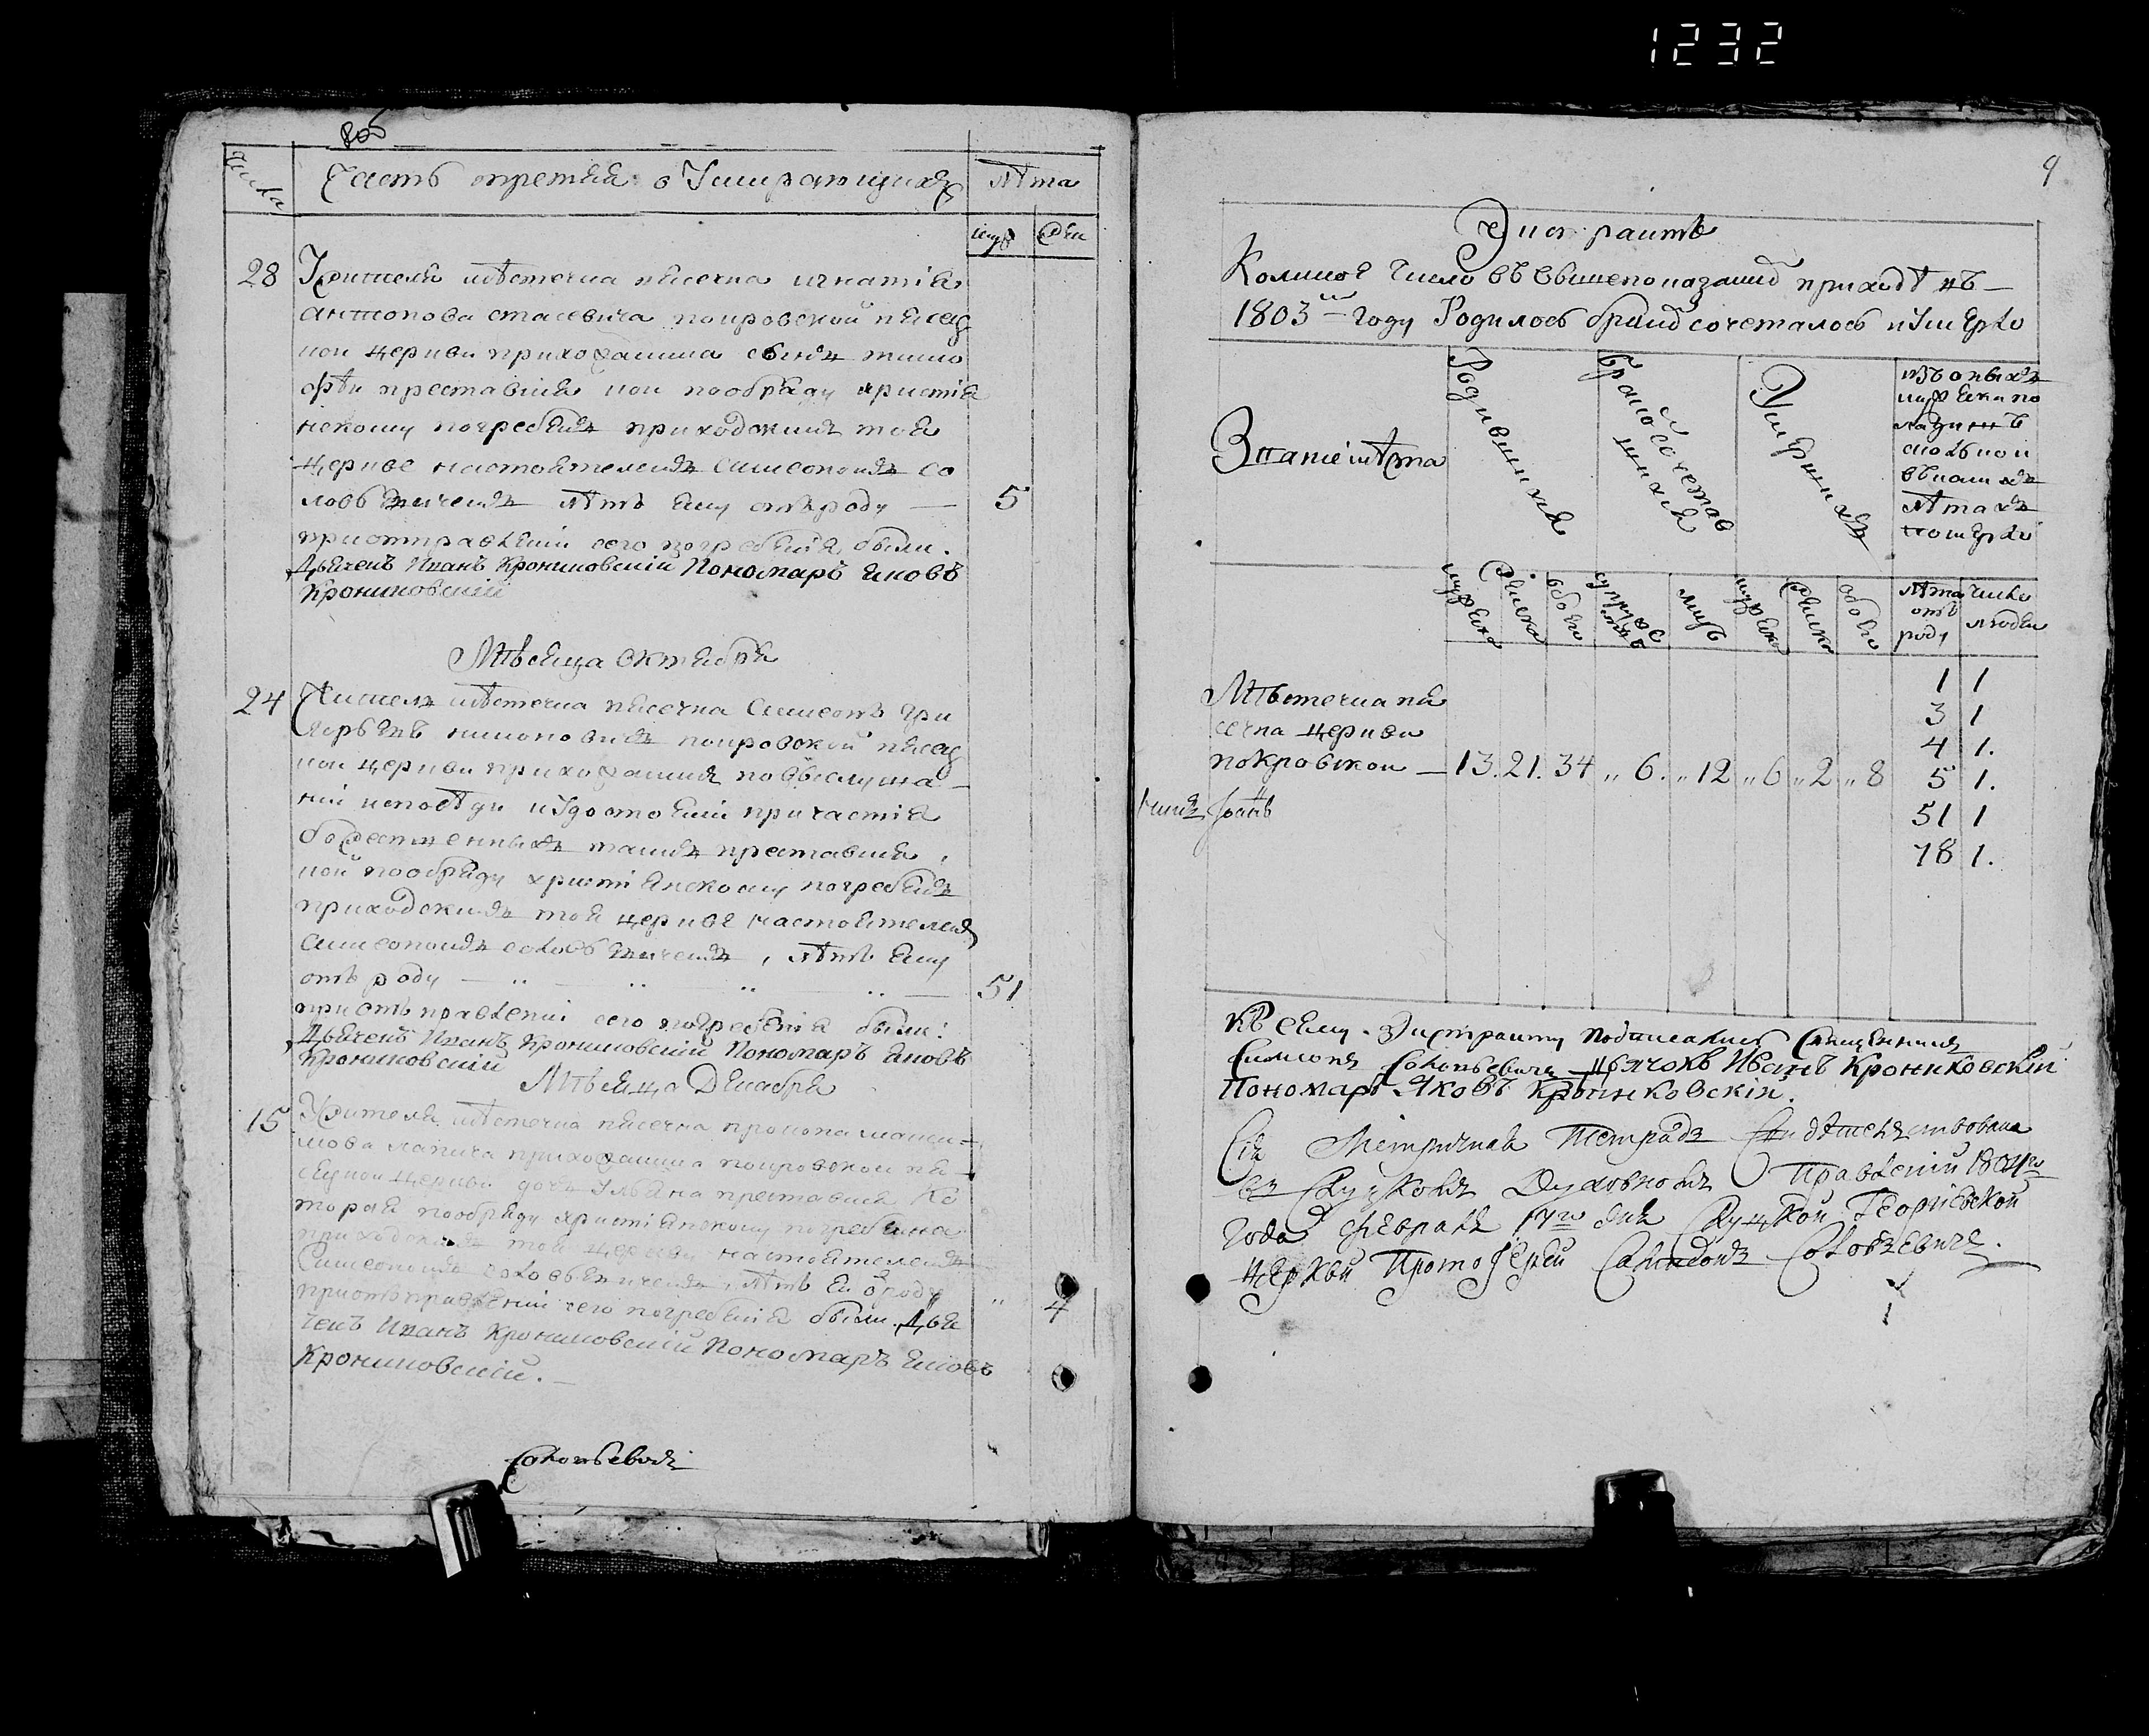 1232
805
Числа
Часть третия о Умирающихъ
лѣта
муж
жен
28
Жителя мѣстечка песечна игнатія
антонова стасевича покровской песеч
ной церкви прихожанина сынъ тимо
фѣй преставися кой пообряду христіа
нскому погребенъ приходскимъ тоя
церкве настоятелемъ Симеономъ Со
ловъевичемъ лѣтъ ему отъроду —
5
приотправленіи сего погребенія были.
Дьячекъ Иванъ Крониковскій Пономарь Яковъ
Крониковскій
Мѣсяца октября
24
Житель мѣстечка песечна Симеонъ Гри
покровской песеч
ной церкви прихожанинъ повыслуша
ніи исповѣди иУдостоеніи причастія
божественныхъ таинъ преставися,
кой пообряду христіанскому погребенъ
приходскимъ тоя церкве настоятелемъ
Симеономъ соловъевичемъ, лѣтъ Ему
отъ роду — " " " " —
51
приотъправленіи сего погребенія были:
Дьячекъ Иванъ Крониковскій Пономарь Яковъ
Крониковскій
Мѣсяца Декабря
15
Жителя мѣстечка песечна прокопа макси=
мова лапича прихожанина покровской пе
сечной церкви дочь Ульяна преставися Ко
торая пообряду христіанскому погребенна
приходскимъ тоя церкви настоятелемъ
Симеономъ соловъевичемъ, лѣтъ Ей ѿроду
" 4
приотъправленіи сего погребенія были. Дья
чекъ Иванъ Крониковскій Пономарь Яковъ
Крониковскій.
9
Экстрактъ
Коликое Число въ вышепоказанномъ приходѣ въ
1803мъ году Родилось бракомъ сочеталось иУмерло
Званіе мѣста
Родившихся
Бракосочетав
шихся
Умершихъ
изъ оныхъ
мужеска по
ла
сколько и
въкаких
лѣтахъ
померло
мужеска
женска
обоего
супруже
ствъ
лицъ
мужеска
женска
обоего
лѣта
отъ
роду
Число
людей
Мѣстечка пе
сечна церкви
покровской — 13. 21. 34 " 6. " 12 " 6 " 2 " 8
1 1
3 1
4 1.
5 1.
51 1
78 1.
Къ сему Экстракту подписались Священникъ
Симеонъ Соловьевичъ Дьячокъ Иванъ Крониковскій
Пономарь Яковъ Крониковскій.
Сія Метричная Тетрадь Свидѣтельствована
въ Слуцкомъ Духовномъ Правленіи 1804го
Года Февраля дня Слуцкой Георгіевской
церкви Протоіерей Соловьевичъ.